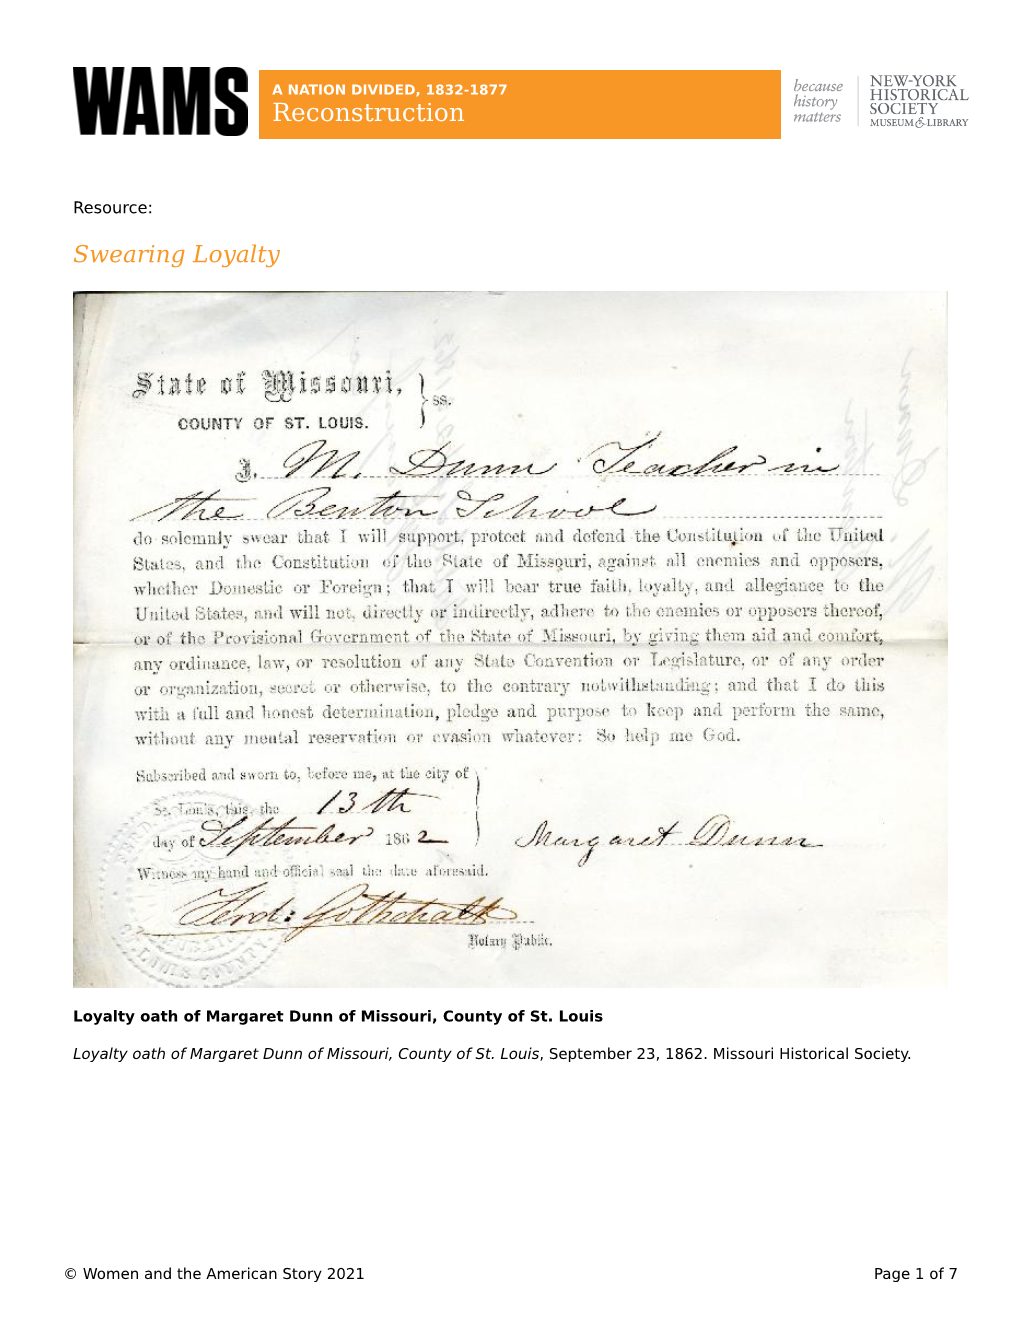 WAMS
A NATION DIVIDED, 1832-1877
Reconstruction
because
history
matters
NEW-YORK
HISTORICAL
SOCIETY
MUSEUM & LIBRARY
Resource:
Swearing Loyalty
State of Missouri,
COUNTY OF ST. LOUIS.
} ss.
I, M. Dunn Teacher in
the Benton School
do solemnly swear that I will support, protect and defend the Constitution of the United
States, and the Constitution of the State of Missouri, against all enemies and opposers,
whether Domestic or Foreign; that I will bear true faith, loyalty, and allegiance to the
United States, and will not, directly or indirectly, adhere to the enemies or opposers thereof,
or of the Provisional Government of the State of Missouri, by giving them aid and comfort,
any ordinance, law, or resolution of any State Convention or Legislature, or of any order
or organization, secret or otherwise, to the contrary notwithstanding; and that I do this
with a full and honest determination, pledge and purpose to keep and perform the same,
without any mental reservation or evasion whatever: So help me God.
Subscribed and sworn to, before me, at the city of
St. Louis, this, the 13th
day of September 1862
Margaret Dunn
Witness my hand and official seal the date aforesaid.
Ferd: Gottschalk
Notary Public.
PUBLIC
LOUIS COUNTY
Loyalty oath of Margaret Dunn of Missouri, County of St. Louis
Loyalty oath of Margaret Dunn of Missouri, County of St. Louis, September 23, 1862. Missouri Historical Society.
© Women and the American Story 2021
Page 1 of 7